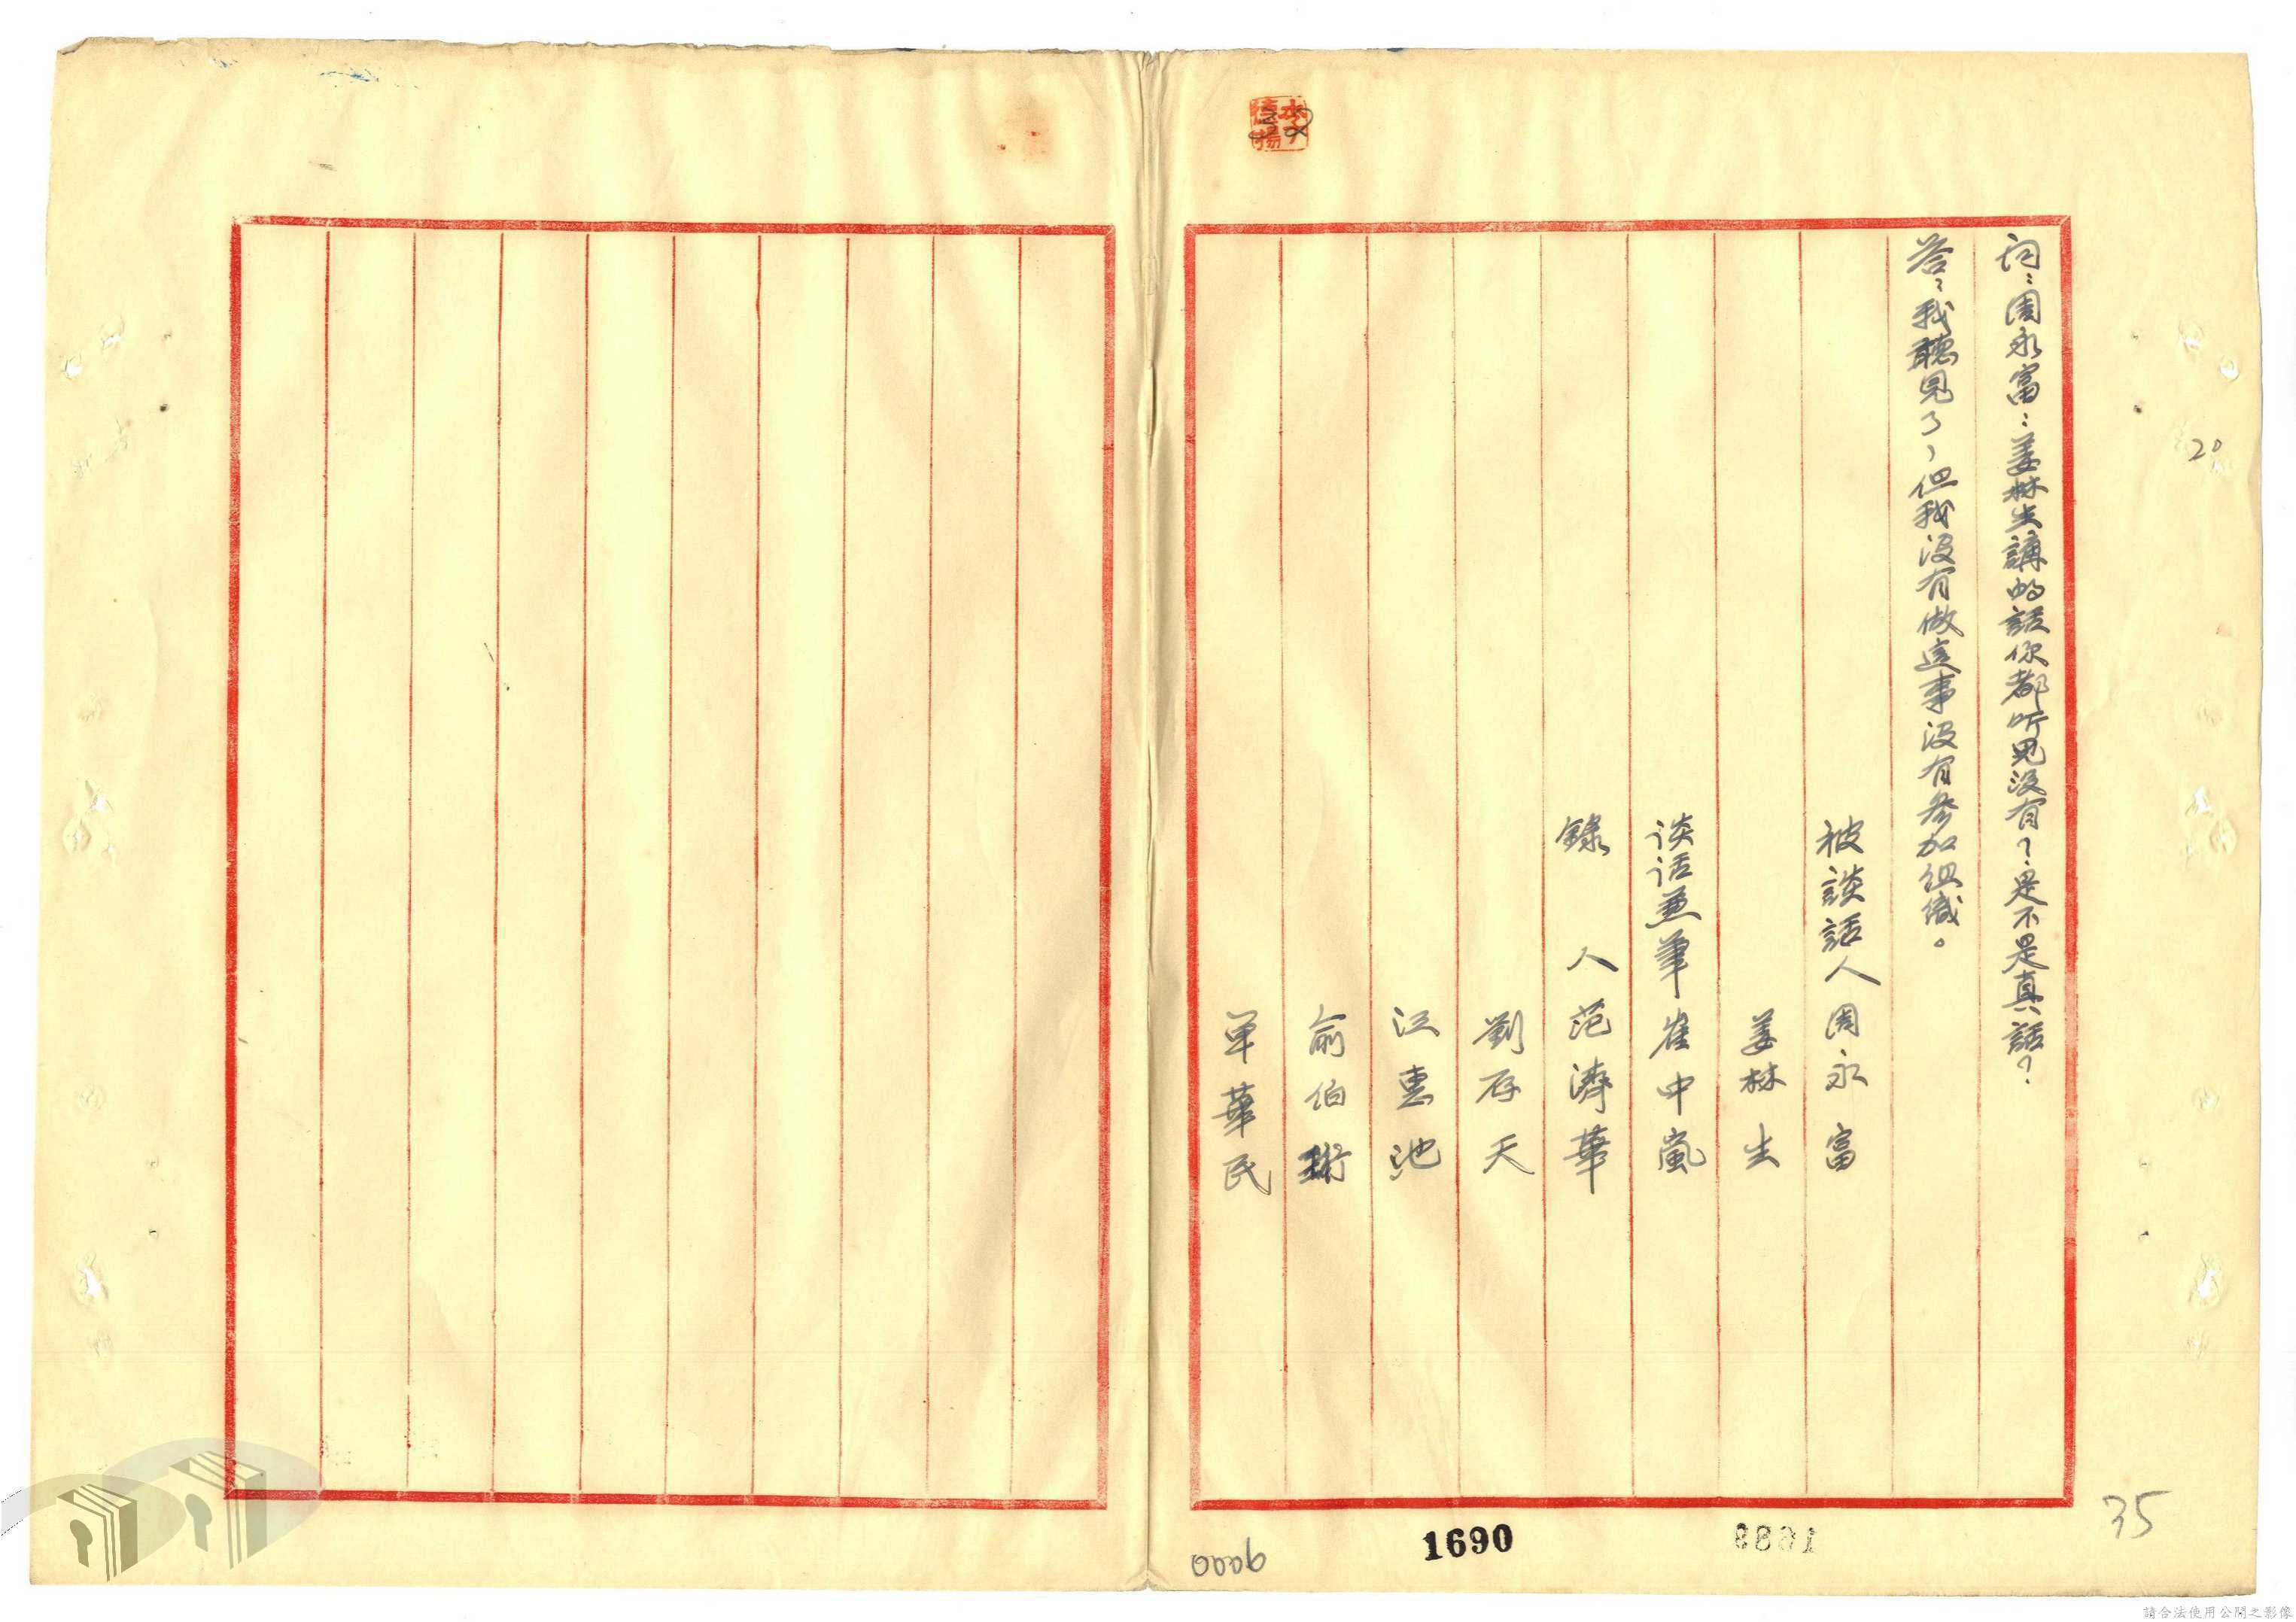 问：周永富：姜林生講的話你都听見没有？是不是真話？
答：我聽見了，但我没有做這事没有參加組織。
被談話人周永富
姜林生
谈话兼筆崔中嵐
錄人范濟華
劉存天
江惠池
俞伯珩
單華民
20
35
0006
1690
請合法使用公開之影像